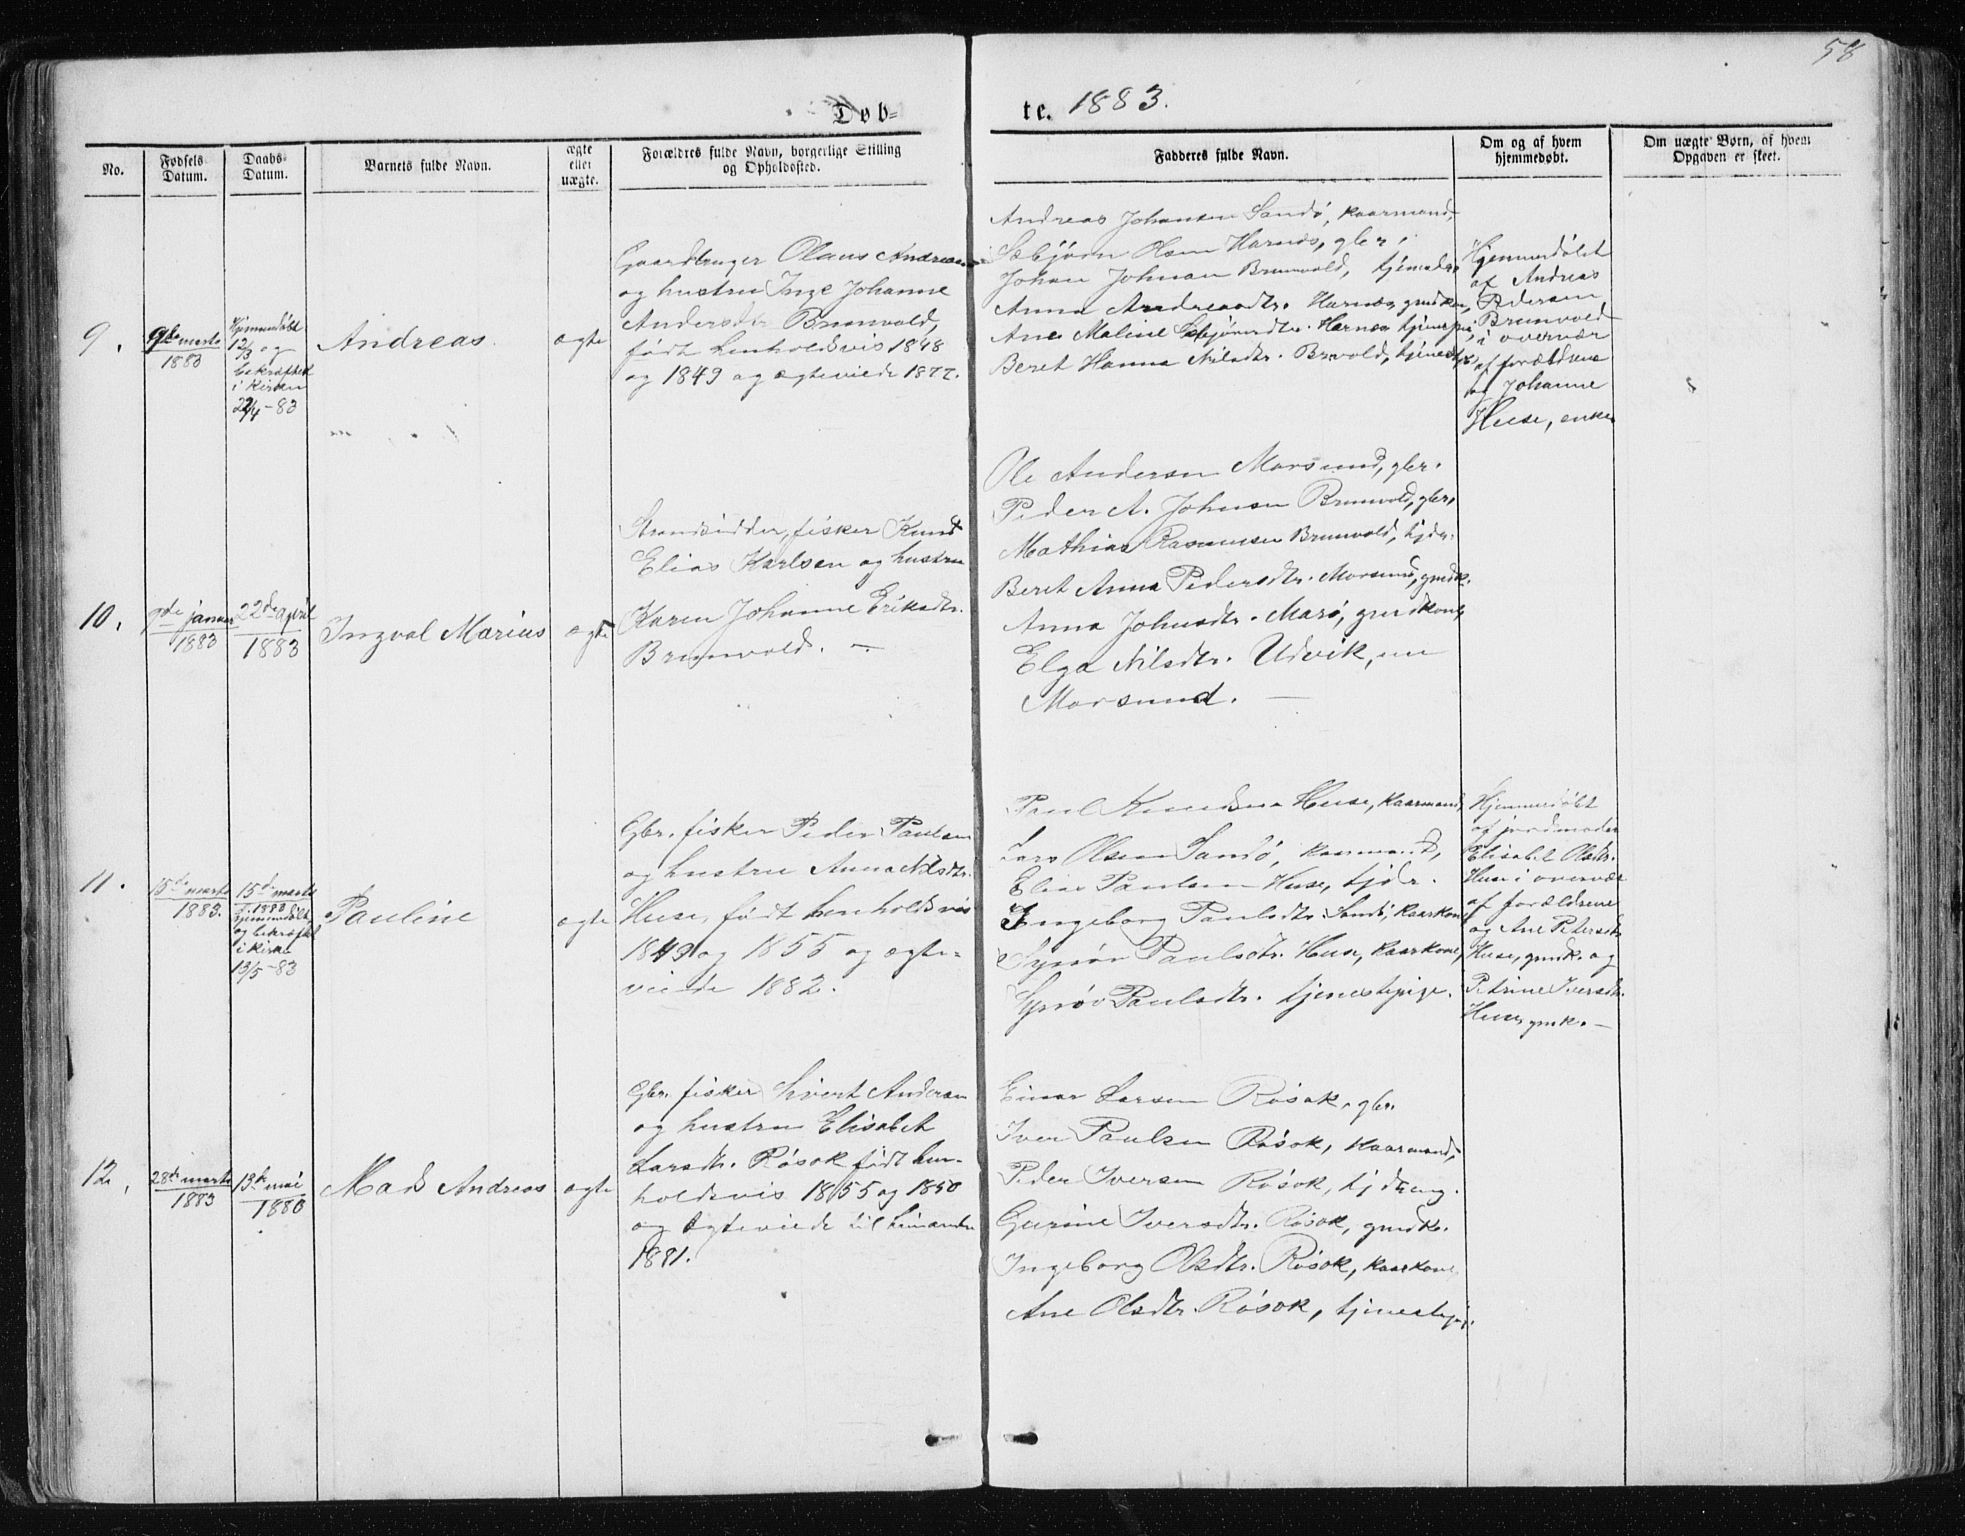 58
Døb-
te. 1883.
No.
Fødsels
Datum.
Daabs
Datum.
Barnets fulde Navn.
ægte
eller
uægte.
Forældres fulde Navn, borgerlige Stilling
og Opholdssted.
Fadderes fulde Navn.
Om og af hvem
hjemmedøbt.
Om uægte Børn, af hvem
Opgaven er skeet.
9.
9de marts
1883
Hjemmedøbt
12/3 og
bekræftet
i Kirken
22/4-83
Andreas.
ægte
Gaardbruger Olaus Andreasen
og hustru Inge Johanne
Andersdtr Brunvold,
født henholdsvis 1848
og 1849 og ægteviede 1877.
Andreas Johansen Sandø, kaarmand,
Sæbjørn Olsen Harnæs, gbr,
Johan Johnsen Brunvold, tjenedr.
Anna Andreasdtr. Harnæs, gmdkone,
Ane Maline Sæbjørnsdtr. Harnæs tjenepi,
Beret Hanna Nilsdtr. Brvold, tjenestp,
Hjemmedøbt
af Andreas
Pedersen
Brunvold
i overvær
af forældrene
og Johanne
Huse, enke
10.
9de januar
1883
22de april
1883
Ingval Marius
ægte
Strandsidder, fisker Knud
Elias Karlsen og hustru
Karen Johanne Eriksdtr.
Brunvold. —
Ole Andersen Morsund, gbr.
Peder A. Johnsen Brunvold, gbr,
Mathias Rasmussen Brunvold, tjdr.
Beret Anna Pedersdtr. Morsund, gmdk.
Anna Johnsdtr. Marø, gmdkone,
Elga Nilsdtr. Udvik, nu
Morsund. —
11.
15de marts
1883.
15de marts
1883
hjemmedøbt
og bekræftet
i Kirke
13/5-83
Pauline
ægte
Gbr. fisker Peder Paulsen
og hustru Anna Nilsdtr.
Huse, født henholdsvis
1849 og 1855 og ægte-
viede 1882.
Paul Knudsen Huse, kaarmand,
Lars Olsen Sandø, kaarmand,
Elias Paulsen Huse, tjdr.
Ingeborg Paulsdtr. Sandø, kaarkone
Synøv Paulsdtr. Huse, kaarkone,
Synøv Paulsdtr. tjenestepige.
Hjemmedøbt
af jordmoder
Elisabet Olsdtr.
Huse i overvær
af forældrene
og Ane Petersdtr.
Huse, gmdk. og
Petrine Iversdtr.
Huse, gmk. —
12.
28de marts
1883
13de mai
1883
Mads Andreas
ægte
Gbr. fisker Sivert Andersen
og hustru Elisabet
Larsdtr. Røsok født hen-
holdsvis 1855 og 1850
og ægteviede til hinanden
1881.
Einar Larsen Røsok, gbr.
Iver Paulsen Røsok, kaarmand,
Peder Iversen Røsok, tjdreng.
Gurine Iversdtr. Røsok, gmdk.
Ingeborg Olsdtr. Røsok, kaarkone
Ane Olsdtr. Røsok, tjenestepi.